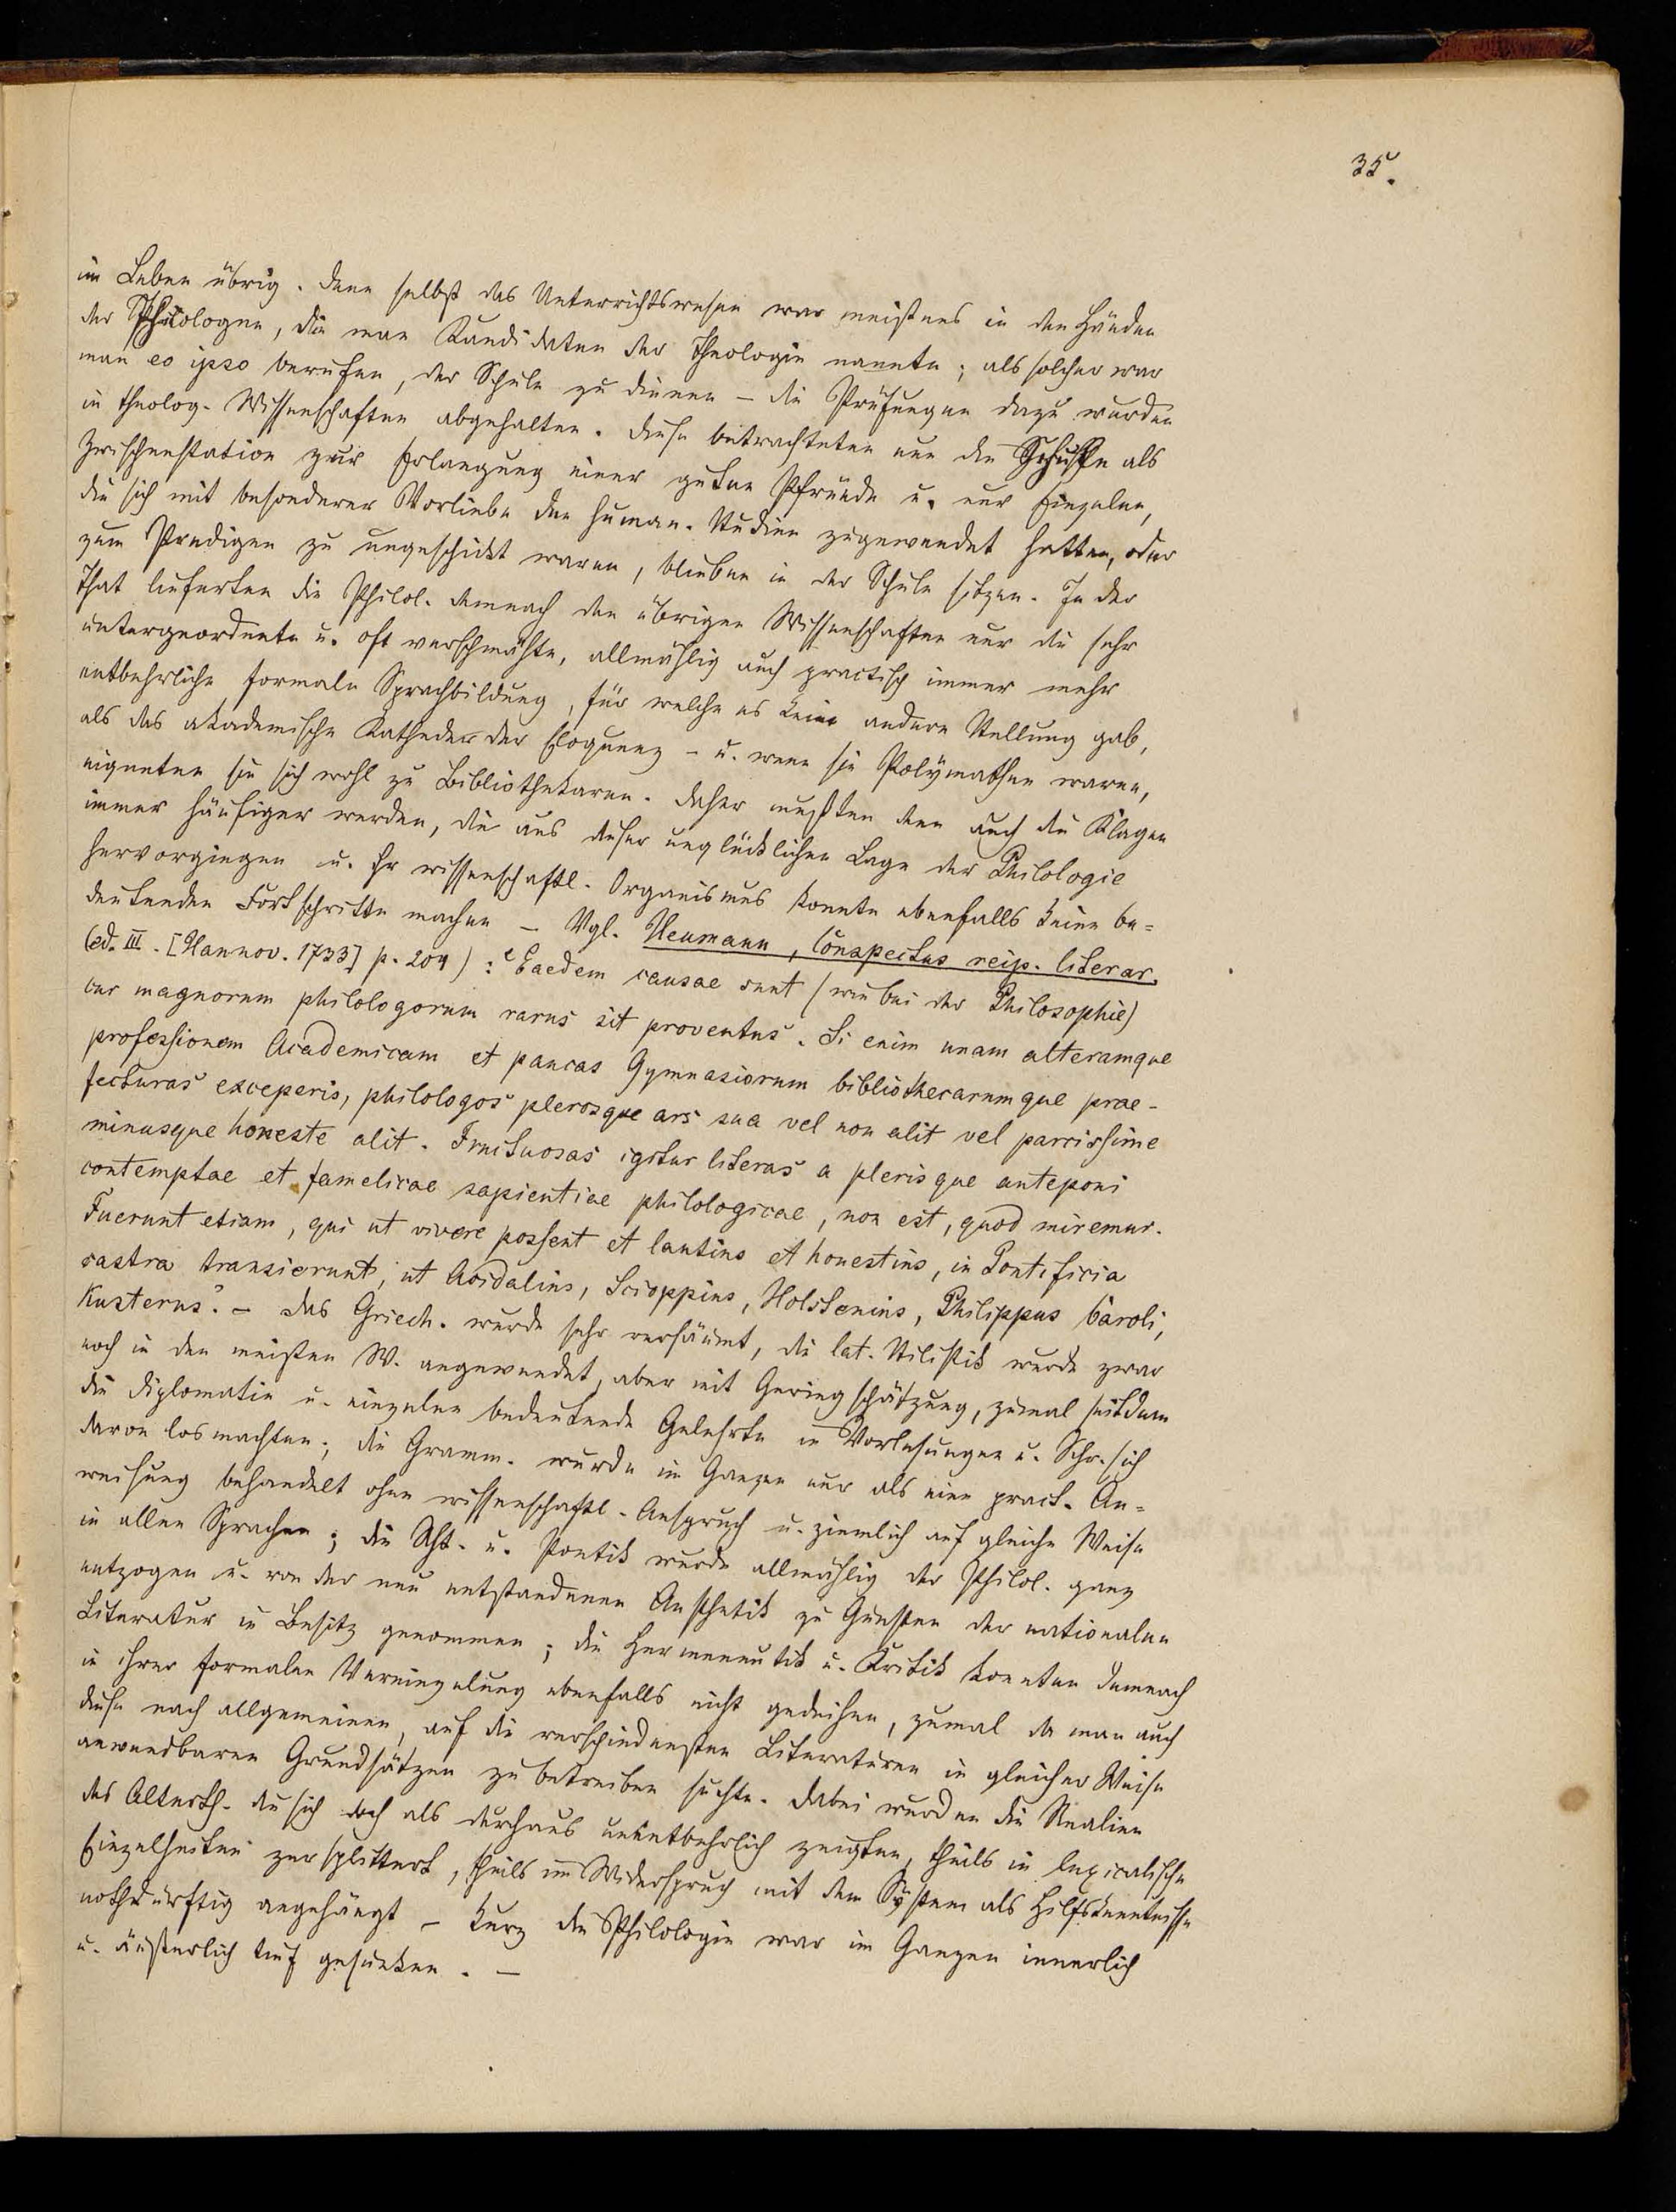 35.
im Leben übrig. Denn selbst das Unterrichtswesen war meistens in den Händen
der Philologen, die man Kandidaten der Theologie nannte; als solcher war
man eo ipso berufen, der Schule zu dienen – die Prüfungen dazu wurden
in theolog. Wissenschaften abgehalten. Diese betrachteten nun die Schule als
Zwischenstation zur Erlangung einer guten Pfründe u. nur Einzelne,
die sich mit besonderer Vorliebe den human. Studien zugewendet hatten, oder
zum Predigen zu ungeschickt waren, blieben in der Schule sitzen. In der
That lieferten die Philol. demnach den übrigen Wissenschaften nur die sehr
untergeordnete u. oft verschmähte, allmählig auch practisch immer mehr
entbehrliche formale Sprachbildung, für welche es keine andere Stellung gab,
als das akademische Katheder der Eloquenz – u. wenn sie Polÿmathen waren,
eigneten sie sich wohl zu Bibliothekaren. Daher mußten denn auch die Klagen
immer häufiger werden, die aus dieser unglücklichen Lage der Philologie
hervorgingen u. ihr wissenschaftl. Organismus konnte ebenfalls keine be=
deutenden Fortschritte machen – Vgl. Heumann, Conspectus reip. literar.
(ed. III. [Hannov. 1733] p. 204): ‘Eaedem causae sunt (wie bei der Philosophie)
cur magnorum philologorum rarus sit proventus. Si enim unam alteramque
professionem Academicam et paucas Gymnasiorum bibliothecarumque prae-
fecturas exceperis, philologos plerosque ars sua vel non alit vel parcissime
minusque honeste alit. Fructuosas igitur literas a plerisque anteponi
contemptae et famelicae sapientiae philologicae, non est, quod miremur.
Fuerunt etiam, qui ut vivere possent et lautius et honestius, in Pontificia
castra transierunt, ut Acidalius, Scioppius, Holstenius, Philippus Caroli,
Kusterus’. – Das Griech. wurde sehr versäumt, die lat. Stilistik wurde zwar
noch in den meisten W. angewendet, aber mit Geringschätzung, zumal seitdem
die Diplomatie u. einzelne bedeutende Gelehrte in Vorlesungen u. Schr. sich
davon losmachten; die Gramm. wurde im Ganzen nur als eine pract. An=
weisung behandelt ohne wissenschaftl. Anspruch u. ziemlich auf gleiche Weise
in allen Sprachen; die Rht. u. Poetik wurde allmählig der Philol. ganz
entzogen u. von der neu entstandenen Aesthetik zu Gunsten der nationalen
Literatur in Besitz genommen; die Hermeneutik u. Kritik konnten demnach
in ihrer formalen Vereinzelung ebenfalls nicht gedeihen, zumal da man auch
diese nach allgemeinen, auf die verschiedensten Literaturen in gleicher Weise
anwendbaren Grundsätzen zu betreiben suchte. Dabei wurden die Realien
des Alterth. die sich doch als durchaus unentbehrlich zeigten, theils in lexicalische
Einzelheiten zersplittert, theils im Widerspruch mit dem Sÿstem als Hilfskenntnisse
nothdürftig angehängt – kurz die Philologie war im Ganzen innerlich
u. äußerlich tief gesunken. –